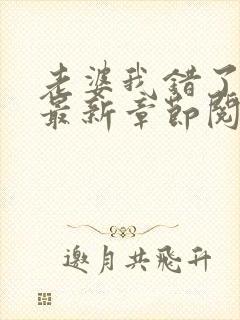 老婆我错了
最新章节阅
邀月共飞升